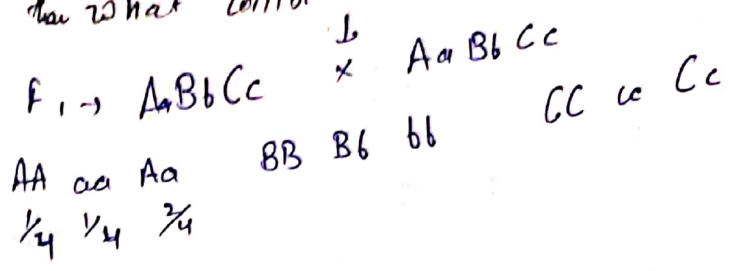 What
F1 → AaBbCc × AaBbCc
AA aa Aa BB Bb bb CC cc Cc
1/4 1/4 2/4